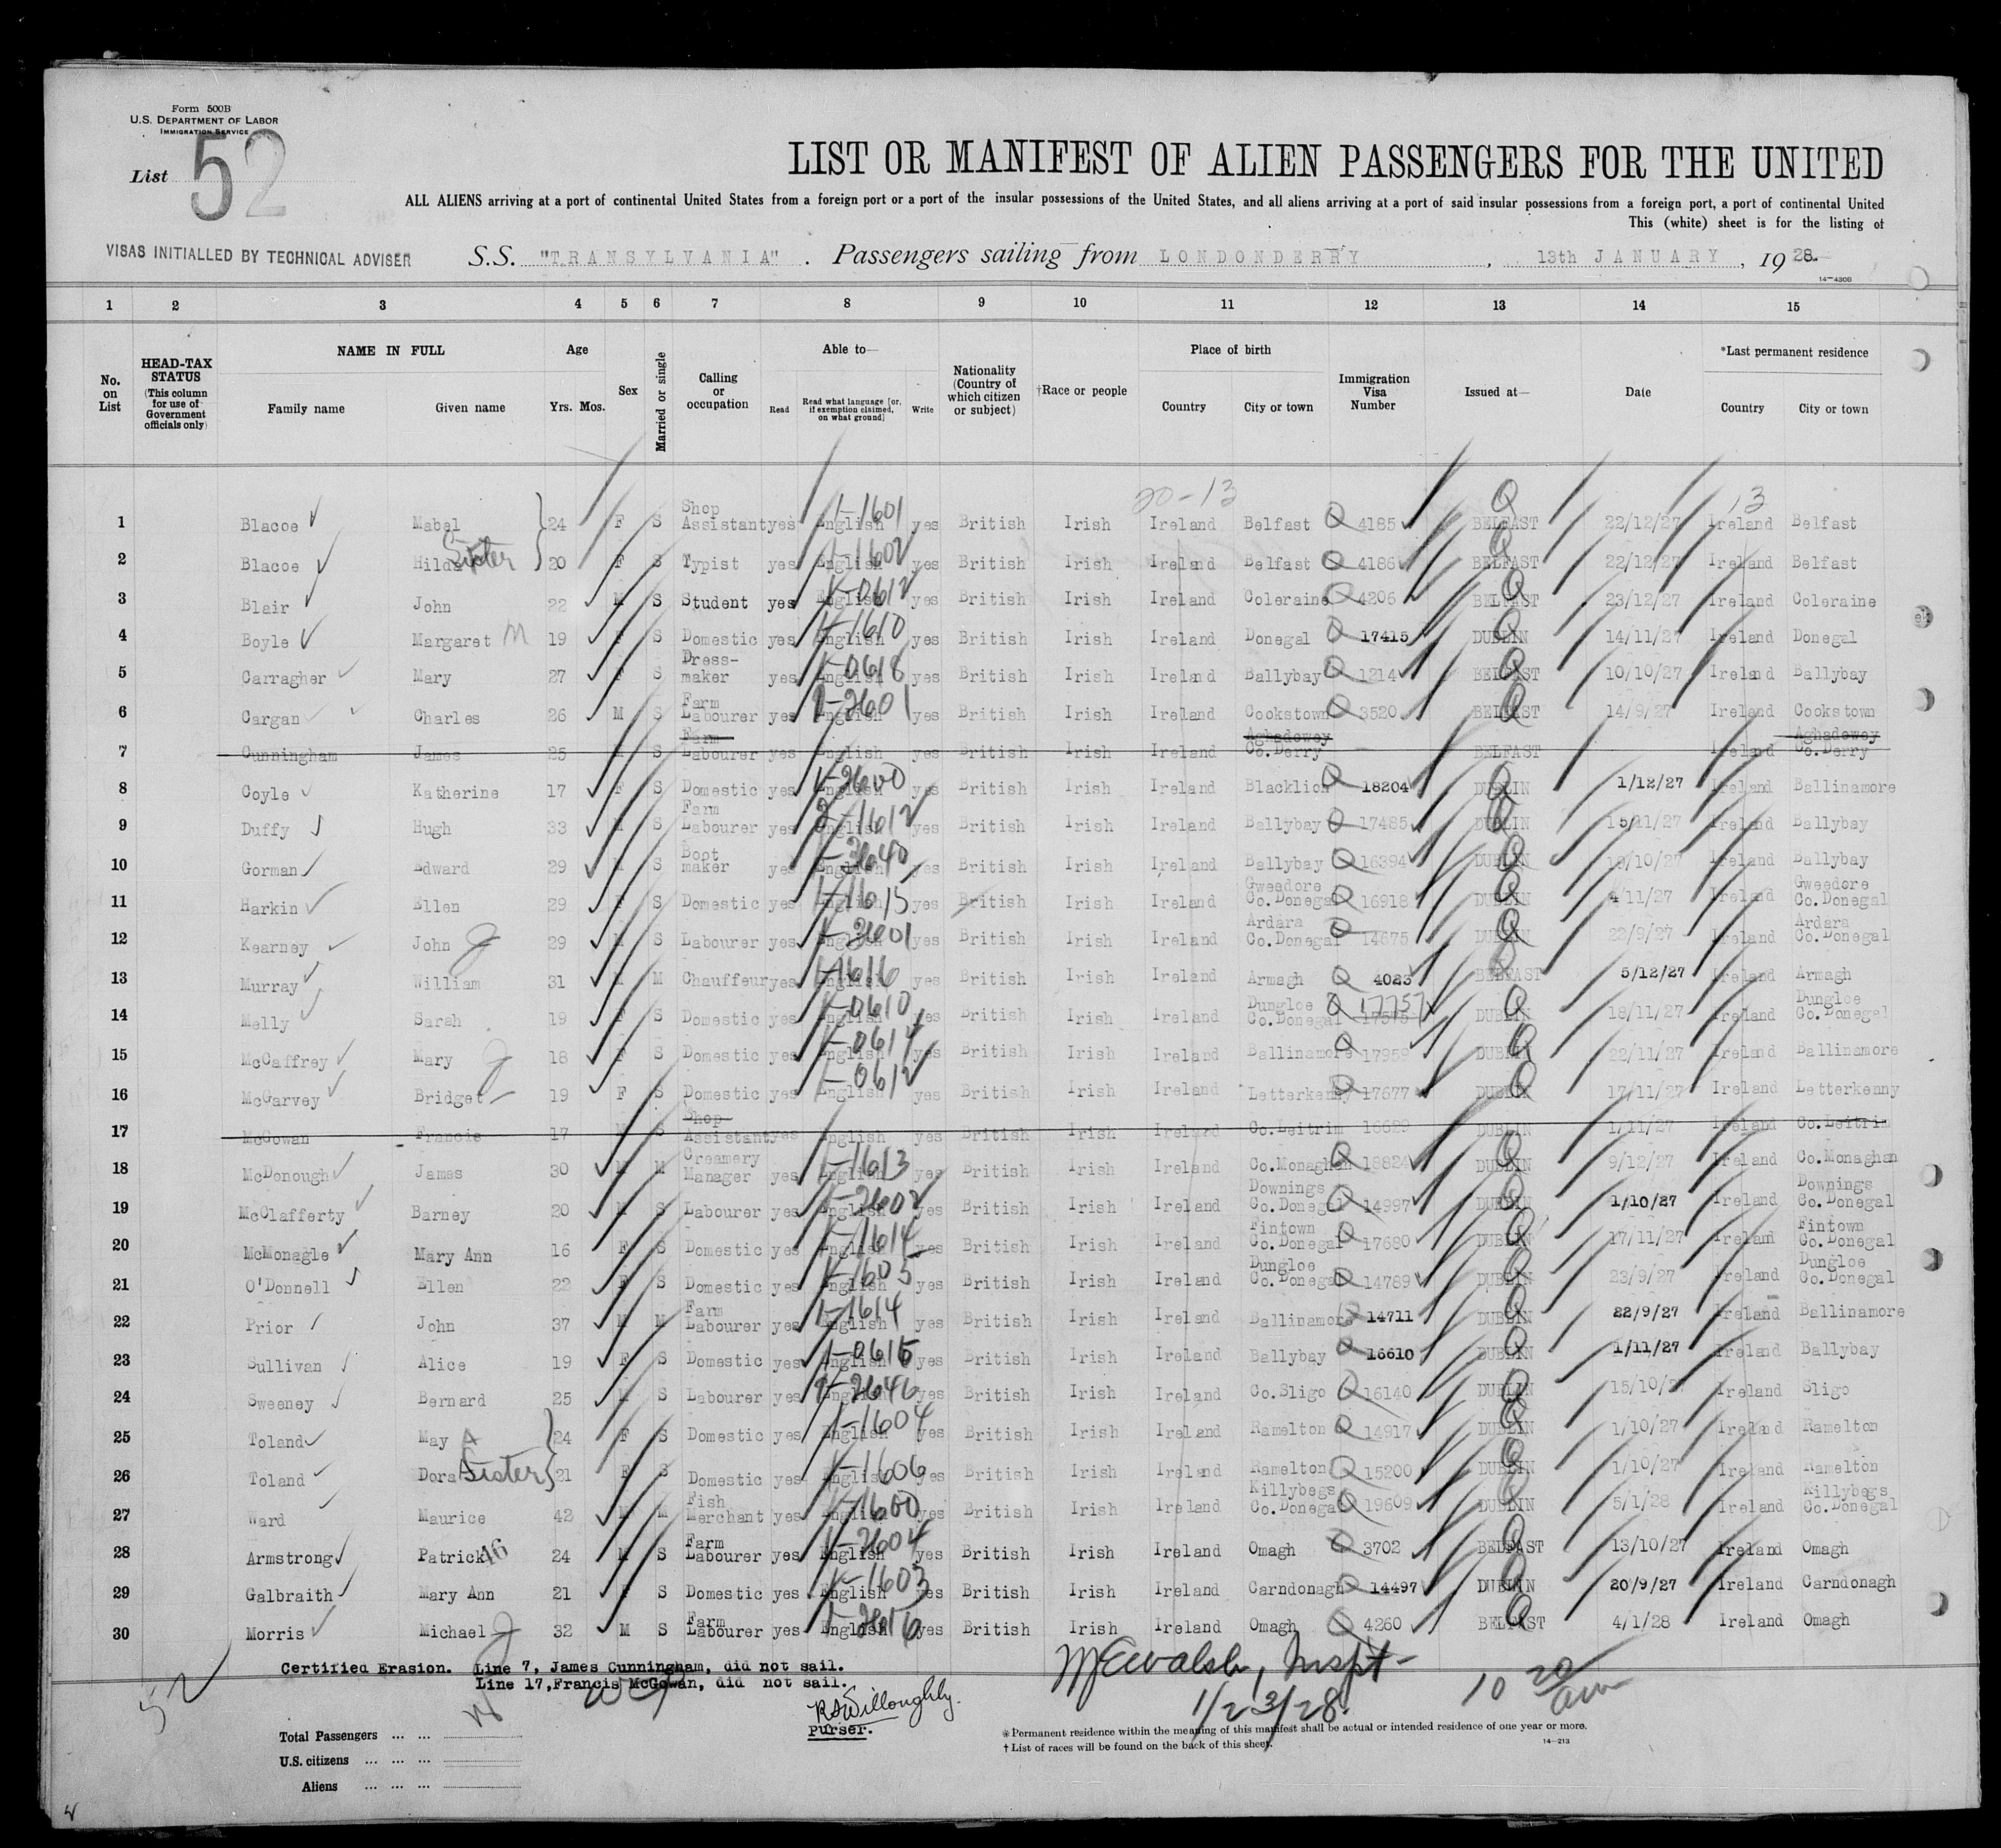 Form 500B
U.S. DEPARTMENT OF LABOR
IMMIGRATION SERVICE
List 52
LIST OR MANIFEST OF ALIEN PASSENGERS FOR THE UNITED
ALL ALIENS arriving at a port of continental United States from a foreign port or a port of the insular possessions of the United States, and all aliens arriving at a port of said insular possessions from a foreign port, a port of continental United
This (white) sheet is for the listing of
VISAS INITIALLED BY TECHNICAL ADVISER
S.S. "TRANSYLVANIA". Passengers sailing from LONDONDERRY, 13th JANUARY, 1928.
14—430B
1 2 3 4 5 6 7 8 9 10 11 12 13 14 15
No. on List
HEAD-TAX STATUS (This column for use of Government officials only)
NAME IN FULL
Family name Given name
Age
Yrs. Mos.
Sex
Married or single
Calling or occupation
Able to—
Read
Read what language [or, if exemption claimed, on what ground]
Write
Nationality (Country of which citizen or subject)
†Race or people
Place of birth
Country City or town
Immigration Visa Number
Issued at—
Date
*Last permanent residence
Country City or town
20-13 13
1 Blacoe Mabel 24 F S Shop Assistant yes English 1-1601 yes British Irish Ireland Belfast Q 4185 BELFAST 22/12/27 Ireland Belfast
2 Blacoe Hilda Sister 20 F S Typist yes English 1-1602 yes British Irish Ireland Belfast Q 4186 BELFAST 22/12/27 Ireland Belfast
3 Blair John 22 M S Student yes English 1-0612 yes British Irish Ireland Coleraine Q 4206 BELFAST 23/12/27 Ireland Coleraine
4 Boyle Margaret M 19 F S Domestic yes English 1-1610 yes British Irish Ireland Donegal Q 17415 DUBLIN 14/11/27 Ireland Donegal
5 Carragher Mary 27 F S Dress-maker yes English 1-0618 yes British Irish Ireland Ballybay Q 1214 BELFAST 10/10/27 Ireland Ballybay
6 Cargan Charles 26 M S Farm Labourer yes English 1-2601 yes British Irish Ireland Cookstown Q 3520 BELFAST 14/9/27 Ireland Cookstown
7 Cunningham James 25 M S Farm Labourer yes English yes British Irish Ireland Aghadowey Co.Derry BELFAST Ireland Aghadowey Co.Derry
8 Coyle Katherine 17 F S Domestic yes English 1-2600 yes British Irish Ireland Blacklion Q 18204 DUBLIN 1/12/27 Ireland Ballinamore
9 Duffy Hugh 33 M S Farm Labourer yes English 2-1612 yes British Irish Ireland Ballybay Q 17485 DUBLIN 15/11/27 Ireland Ballybay
10 Gorman Edward 29 M S Boot maker yes English 1-2640 yes British Irish Ireland Ballybay Q 16394 DUBLIN /10/27 Ireland Ballybay
11 Harkin Ellen 29 F S Domestic yes English 1-1615 yes British Irish Ireland Gweedore Co.Donegal Q 16918 DUBLIN 4/11/27 Ireland Gweedore Co.Donegal
12 Kearney John J 29 M S Labourer yes English 1-2601 yes British Irish Ireland Ardara Co.Donegal Q 14675 DUBLIN 22/9/27 Ireland Ardara Co.Donegal
13 Murray William 31 M M Chauffeur yes English 1-1616 yes British Irish Ireland Armagh Q 4023 BELFAST 5/12/27 Ireland Armagh
14 Melly Sarah 19 F S Domestic yes English 1-0610 yes British Irish Ireland Dungloe Co.Donegal Q 17757 DUBLIN 18/11/27 Ireland Dungloe Co.Donegal
15 McCaffrey Mary J 18 F S Domestic yes English 1-0614 yes British Irish Ireland Ballinamore Q 17959 DUBLIN 22/11/27 Ireland Ballinamore
16 McGarvey Bridget 19 F S Domestic yes English 1-0612 yes British Irish Ireland Letterkenny Q 17677 DUBLIN 17/11/27 Ireland Letterkenny
17 McGowan Francis 17 M S Shop Assistant yes English yes British Irish Ireland Co.Leitrim 16629 DUBLIN 1/11/27 Ireland Co.Leitrim
18 McDonough James 30 M M Creamery Manager yes English 1-1613 yes British Irish Ireland Co.Monaghan Q 18824 DUBLIN 9/12/27 Ireland Co.Monaghan
19 McClafferty Barney 20 M S Labourer yes English 1-2602 yes British Irish Ireland Downings Co.Donegal Q 14997 DUBLIN 1/10/27 Ireland Downings Co.Donegal
20 McMonagle Mary Ann 16 F S Domestic yes English 1-1614 yes British Irish Ireland Fintown Co.Donegal Q 17680 DUBLIN 17/11/27 Ireland Fintown Co.Donegal
21 O'Donnell Ellen 22 F S Domestic yes English 1-1605 yes British Irish Ireland Dungloe Co.Donegal Q 14789 DUBLIN 23/9/27 Ireland Dungloe Co.Donegal
22 Prior John 37 M M Farm Labourer yes English 1-1614 yes British Irish Ireland Ballinamore Q 14711 DUBLIN 22/9/27 Ireland Ballinamore
23 Sullivan Alice 19 F S Domestic yes English 1-0615 yes British Irish Ireland Ballybay Q 16610 DUBLIN 1/11/27 Ireland Ballybay
24 Sweeney Bernard 25 M S Labourer yes English 1-2646 yes British Irish Ireland Co.Sligo Q 16140 DUBLIN 15/10/27 Ireland Sligo
25 Toland May A 24 F S Domestic yes English 1-1604 yes British Irish Ireland Ramelton Q 14917 DUBLIN 1/10/27 Ireland Ramelton
26 Toland Dora Sister 21 F S Domestic yes English 1-1606 yes British Irish Ireland Ramelton Q 15200 DUBLIN 1/10/27 Ireland Ramelton
27 Ward Maurice 42 M M Fish Merchant yes English 1-1600 yes British Irish Ireland Killybegs Co.Donegal Q 19609 DUBLIN 5/1/28 Ireland Killybegs Co.Donegal
28 Armstrong Patrick 16 24 M S Farm Labourer yes English 1-2604 yes British Irish Ireland Omagh Q 3702 BELFAST 13/10/27 Ireland Omagh
29 Galbraith Mary Ann 21 F S Domestic yes English 1-1603 yes British Irish Ireland Carndonagh Q 14497 DUBLIN 20/9/27 Ireland Carndonagh
30 Morris Michael J 32 M S Farm Labourer yes English 1-2616 yes British Irish Ireland Omagh Q 4260 BELFAST 4/1/28 Ireland Omagh
Certified Erasion. Line 7, James Cunningham, did not sail.
Line 17, Francis McGowan, did not sail.
McWalsh, Inspt-
1/23/28.
10 20 am
52
RS Willoughby.
Purser.
Total Passengers ... ...
U.S. citizens ... ... ...
Aliens ... ... ...
* Permanent residence within the meaning of this manifest shall be actual or intended residence of one year or more.
† List of races will be found on the back of this sheet.
14—213